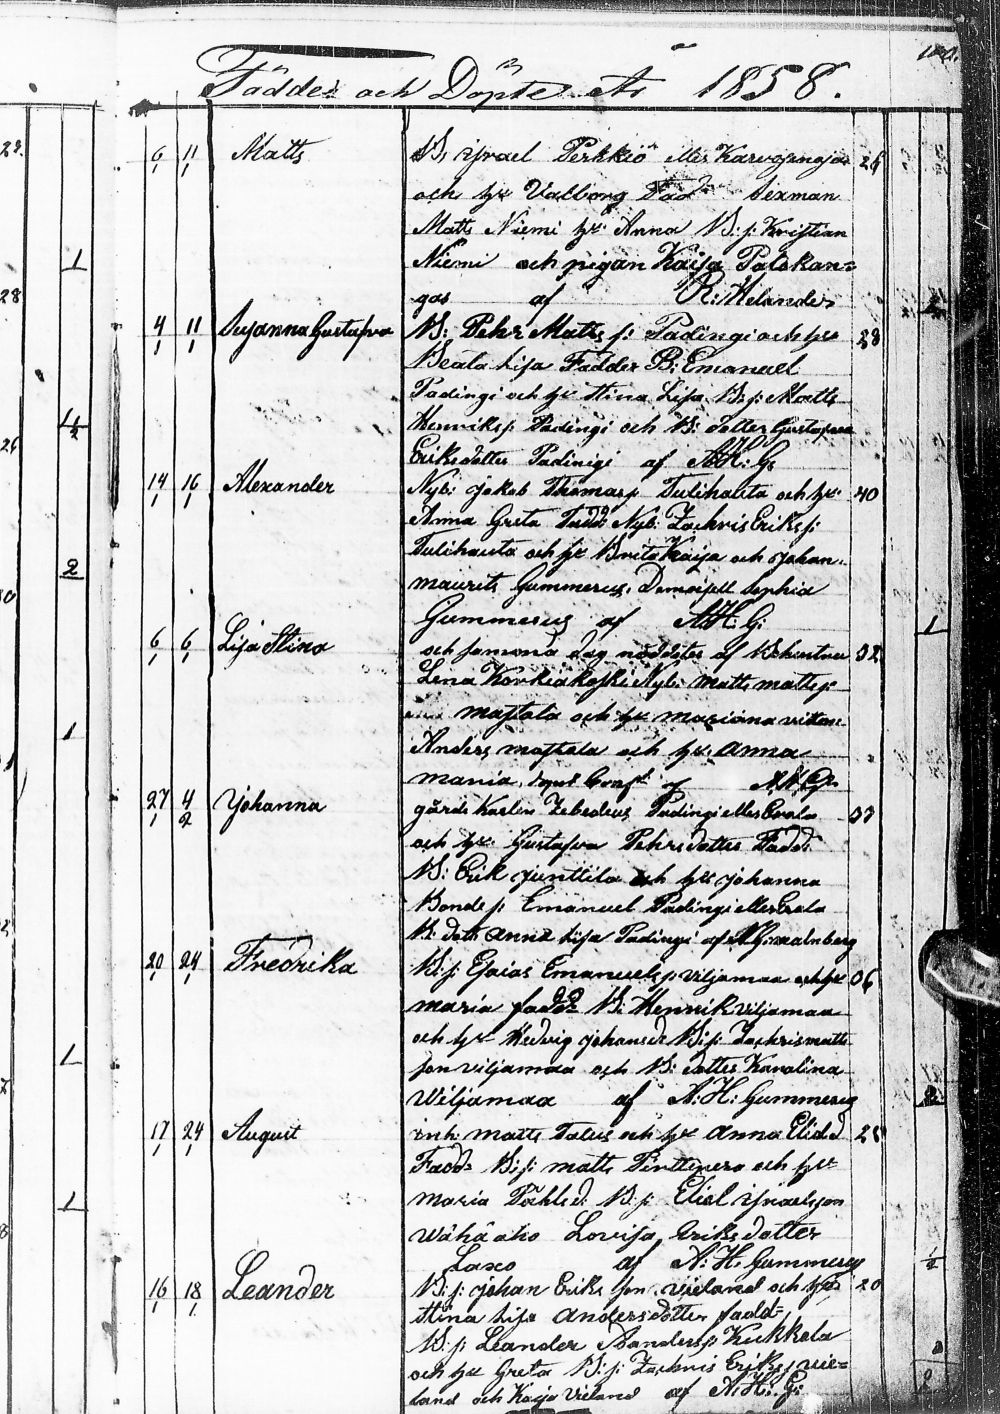 Födde och Döpte År 1858.
6 11 Matts B: Israel Perkkiö eller 26
och hu Valborg Fadd: Sexman
Matts Niemi hu: Anna B: s: Kristian
Niemi och pigan Kaisa Palokan=
gas af R: Helander
4 11 Susanna Gustafva B: Pehr Matts s: Padingi och hu 28
Beata Lisa Fadder B: Emanuel
Padingi och hu Stina Lisa B: s: Matts
Henriks s: Padingi och B: dotter Gustafva
Eriksdotter Padingi af A.H: G:
14 16 Alexander Nyb: Jakob Thomas s: Tulihauta och hu: 40
Anna Greta Fadd: Nyb: Zachris Eriks s:
Tulihauta och hu Brita Kaisa och Johan
maurits Gummerus. Demoisell Sophia
Gummerus af A.H: G:
6 6 Lisa Stina och samma dag af 32
Lena Korkiakoski Nyb: matts matts s:
mastala och hu mariana
Anders mastala och hu: anna
maria,
27 4 2 Johanna gårds Karlen Zebedeus Padingi eller Evala 33
och hu: Gustafva Pehrsdotter Fadd:
B: Erik Junttila och hu Johanna
Bonde s: Emanuel Padingi eller Evala
B: dott: anna Lisa Padingi af malmberg
20 24 Fredrika B: s: Esaias Emanuels s: viljamaa och hu 36
maria fadd: B: Henrik viljamaa
och hu Hedvig Johansd: B: s: Zachris matts
son viljamaa och B: dotter Karolina
Wiljamaa af A: H: Gummerus
17 24 August inh: matts Talus och hu anna Elisd:
Fadd: B: s: matts och hu
maria B: s: Eliel Israelsson
wähäaho Lovisa Eriksdotter
Laxo af A: H: Gummerus
16 18 Leander B: s: Johan Eriks son vieland och hu 20
Stina Lisa andersdotter fadd:
B: s: Leander Anders s: Kukkola
och hu Greta B: s: Zachris Eriks s: vie=
land och Kaisa Vieland af A: H: G: